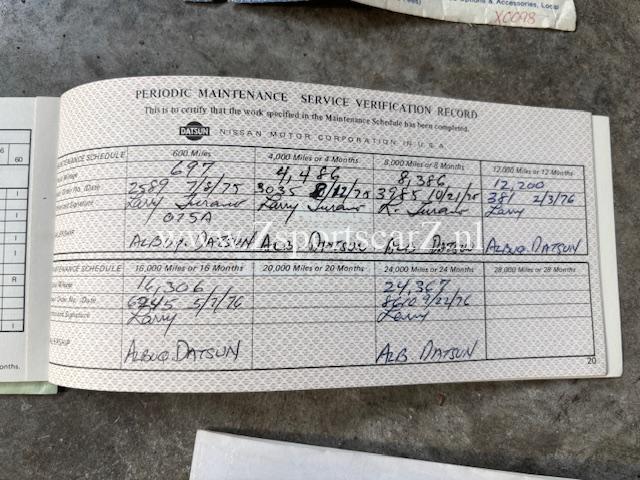 Options & Accessories, Local
XC098
PERIODIC MAINTENANCE SERVICE VERIFICATION RECORD
This is to certify that the work specified in the Maintenance Schedule has been completed.
DATSUN NISSAN MOTOR CORPORATION IN U.S.A.
MAINTENANCE SCHEDULE 600 Miles 4,000 Miles or 4 Months 8,000 Miles or 8 Months 12,000 Miles or 12 Months
Mileage 697 4,486 8,386 12,200
Order No. /Date 2589 7/8/75 3035 8/12/75 3985 10/21/75 381 2/3/76
Signature Larry Larry Larry
075A
DEALERSHIP ALBUQ. DATSUN ALB DATSUN ALB DATSUN ALBUQ. DATSUN
www.ZsportscarZ.nl
MAINTENANCE SCHEDULE 16,000 Miles or 16 Months 20,000 Miles or 20 Months 24,000 Miles or 24 Months 28,000 Miles or 28 Months
16,306 24,367
Order No. /Date 5/7/76 9/22/76
Signature Larry Larry
DEALERSHIP ALBUQ. DATSUN ALB DATSUN
20
6
60
I
R
onths.